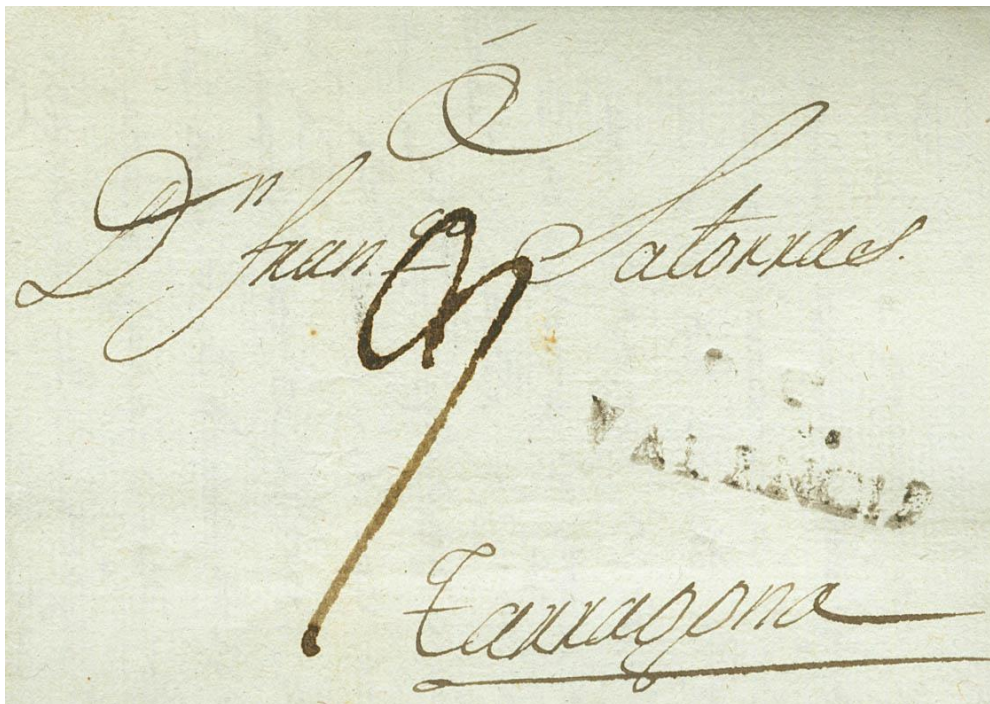 A
Dn. Franco. Satorras.
9
VALENCIA
Tarragona